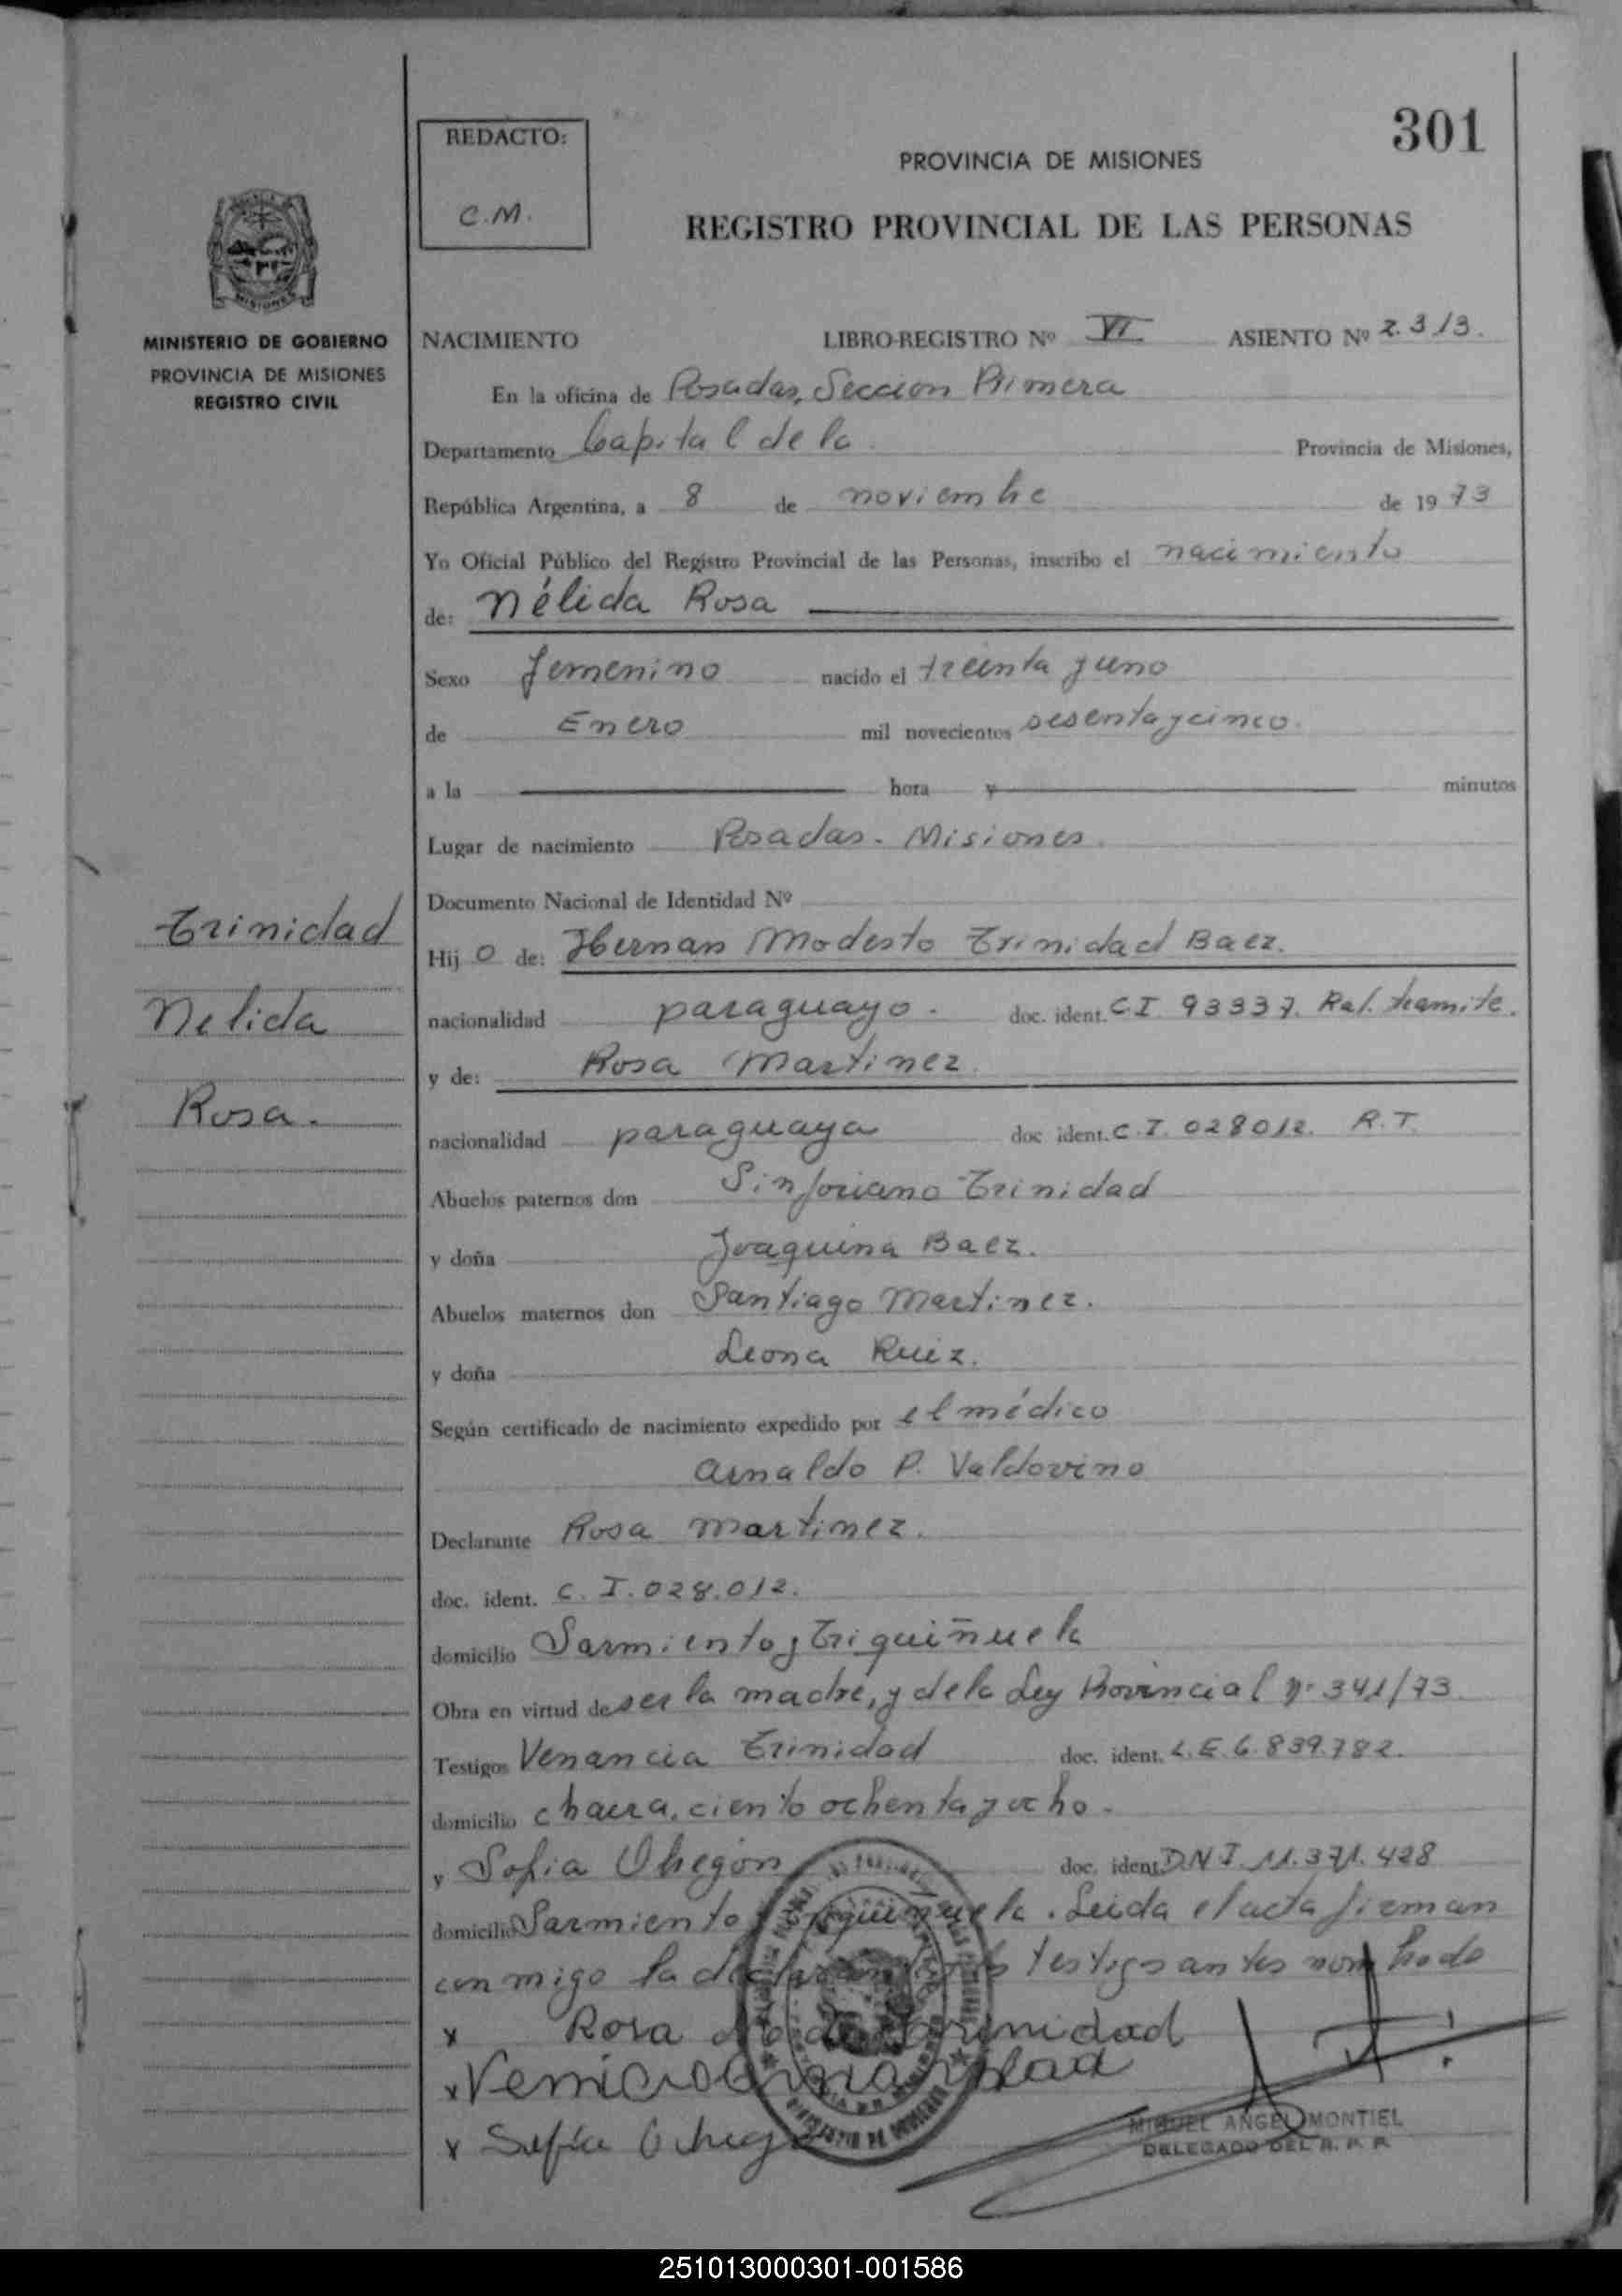 301
REDACTO:
C.M.
PROVINCIA DE MISIONES
REGISTRO PROVINCIAL DE LAS PERSONAS
MISIONES
MINISTERIO DE GOBIERNO
PROVINCIA DE MISIONES
REGISTRO CIVIL
NACIMIENTO LIBRO-REGISTRO Nº VI ASIENTO Nº 2.313.
En la oficina de Posadas, Sección Primera
Departamento Capital de la Provincia de Misiones,
República Argentina, a 8 de noviembre de 1973
Yo Oficial Público del Registro Provincial de las Personas, inscribo el nacimiento
de: Nélida Rosa
Sexo femenino nacido el treinta y uno
de Enero mil novecientos sesenta y cinco.
a la hora y minutos
Lugar de nacimiento Posadas - Misiones.
Documento Nacional de Identidad Nº
Trinidad
Nelida
Rosa.
Hij o de: Hernan Modesto Trinidad Baez.
nacionalidad paraguayo. doc. ident. C.I. 93337. Ral. tramite.
y de: Rosa Martinez.
nacionalidad paraguaya doc ident. C.I. 028012. R.T.
Abuelos paternos don Sinforiano Trinidad
y doña Joaquina Baez.
Abuelos maternos don Santiago Martinez.
y doña Leona Ruiz.
Según certificado de nacimiento expedido por el médico
Arnaldo P. Valdovino
Declarante Rosa Martinez.
doc. ident. C.I. 028.012.
domicilio Sarmiento y Triquiñuela
Obra en virtud de ser la madre, y de la Ley Provincial nº 341/73.
Testigos Venancia Trinidad doc. ident. L.E. 6.839.782.
domicilio chacra, ciento ochenta y ocho.
y Sofia Obregón doc. ident D.N.I. 11.371.428
domicilio Sarmiento y Triquiñuela. Leida el acta firman
conmigo la declarante y los testigos antes nombrado
x Rosa de Trinidad
x Trinidad
x Sofia
MIGUEL ANGEL MONTIEL
DELEGADO DEL R. P. P.
251013000301-001586